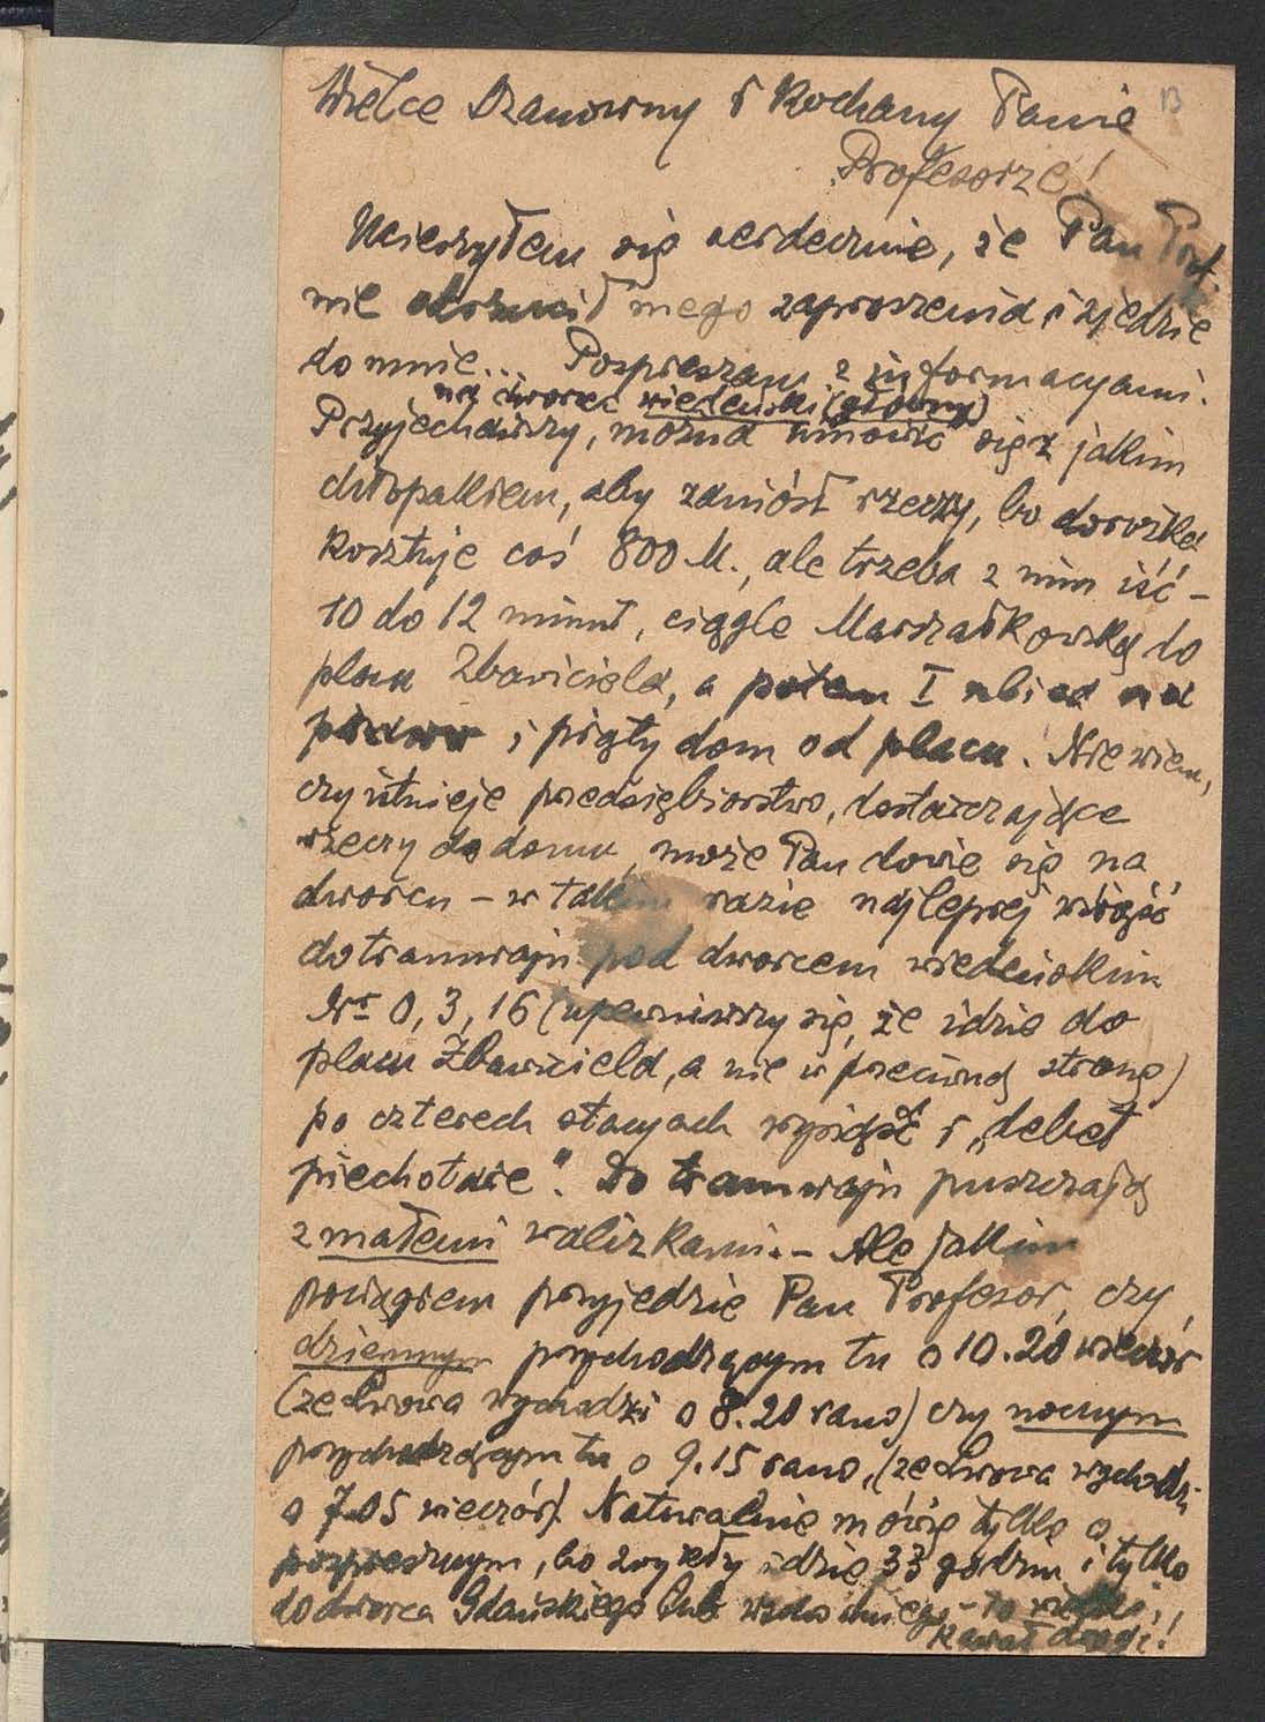 Wielce Szanowny i Kochany Panie
13
Profesorze!
Ucieszyłem się serdecznie, że Pan Prof.
nie odrzucił mego zaproszenia i zjedzie
do mnie... Pospieszam z informacyami.
na dworzec wiedeński (główny)
Przyjechawszy, można umówić się z jakim
chłopakiem, aby zaniósł rzeczy, bo dorożka
kosztuje coś 800 M., ale trzeba z nim iść –
10 do 12 minut, ciągle Marszałkowską do
placu Zbawiciela, a potem I ulica na
prawo i piąty dom od placu. Nie wiem,
czy istnieje przedsiębiorstwo, dostarczające
rzeczy do domu, może Pan dowie się na
dworcu – w takim razie najlepiej wsiąść
do tramwaju pod dworcem wiedeńskim
Nr 0, 3, 16 (upewniwszy się, że idzie do
placu Zbawiciela, a nie w przeciwną stronę)
po czterech stacyach wysiąść i „debet
piechotare". Do tramwaju puszczają
z małemi walizkami. – Ale jakim
pociągiem przyjedzie Pan Profesor, czy
dziennym przychodzącym tu o 10.20 wieczór
(ze Lwowa wychodzi o 8.20 rano) czy nocnym
przychodzącym tu o 9.15 rano, (ze Lwowa wychodzi
o 7.05 wieczór). Naturalnie mówię tylko o
pospiesznym, bo zwykły idzie 33 godzin i tylko
do dworca Gdańskiego lub wschodniego – to
kawał drogi!